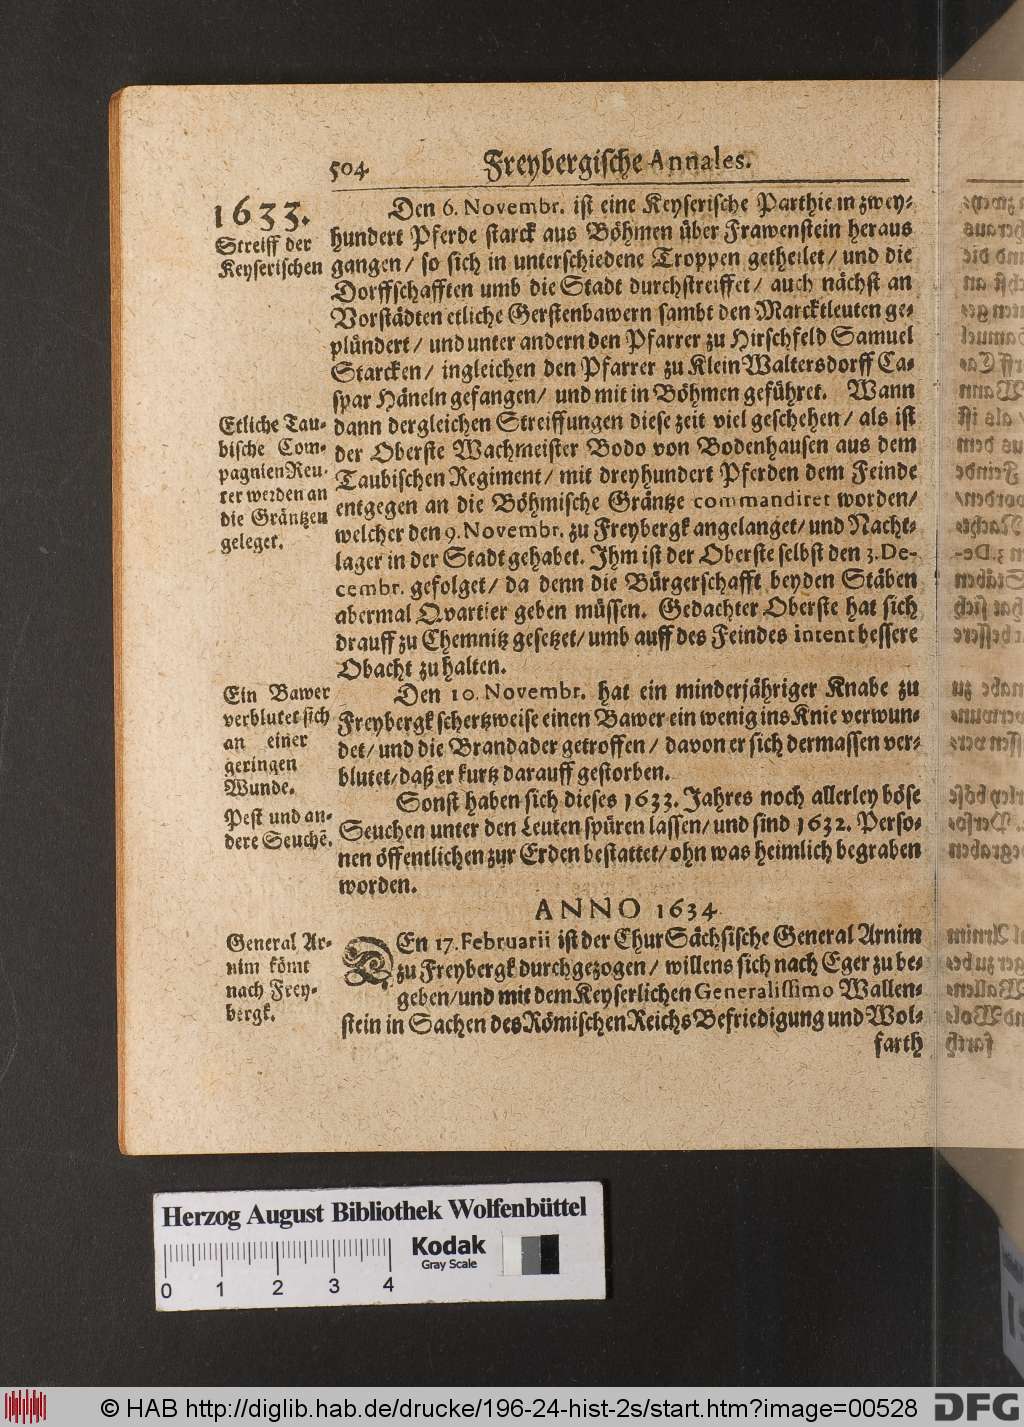 504 Freybergische Annales.
1633.
Streiff der
Keyserischen
Den 6. Novembr. ist eine Keyserische Parthie in zwey-
hundert Pferde starck aus Böhmen über Frawenstein heraus
gangen/ so sich in unterschiedene Troppen getheilet/ und die
Dorffschafften umb die Stadt durchstreiffet/ auch nächst an
Vorstädten etliche Gerstenbawern sambt den Marcktleuten ge-
plündert/ und unter andern den Pfarrer zu Hirschfeld Samuel
Starcken/ ingleichen den Pfarrer zu Klein Waltersdorff Ca-
spar Häneln gefangen/ und mit in Böhmen geführet. Wann
dann dergleichen Streiffungen diese zeit viel geschehen/ als ist
der Oberste Wachmeister Bodo von Bodenhausen aus dem
Taubischen Regiment/ mit dreyhundert Pferden dem Feinde
entgegen an die Böhmische Gräntze commandiret worden/
welcher den 9. Novembr. zu Freybergk angelanget/ und Nacht-
lager in der Stadt gehabet. Ihm ist der Oberste selbst den 3. De-
cembr. gefolget/ da denn die Bürgerschafft beyden Stäben
abermal Qvartier geben müssen. Gedachter Oberste hat sich
drauff zu Chemnitz gesetzet/ umb auff des Feindes intent bessere
Obacht zu halten.
Etliche Tau-
bische Com-
pagnien Reu-
ter werden an
die Gräntzen
geleget.
Den 10. Novembr. hat ein minderjähriger Knabe zu
Freybergk schertzweise einen Bawer ein wenig ins Knie verwun-
det/ und die Brandader getroffen/ davon er sich dermassen ver-
blutet/ daß er kurtz darauff gestorben.
Ein Bawer
verblutet sich
an einer
geringen
Wunde.
Sonst haben sich dieses 1633. Jahres noch allerley böse
Seuchen unter den Leuten spüren lassen/ und sind 1632. Perso-
nen öffentlichen zur Erden bestattet/ ohn was heimlich begraben
worden.
Pest und an-
dere Seuchē.
ANNO 1634
DEn 17. Februarii ist der ChurSächsische General Arnim
zu Freybergk durchgezogen/ willens sich nach Eger zu be-
geben/ und mit dem Keyserlichen Generalissimo Wallen-
stein in Sachen des Römischen Reichs Befriedigung und Wol-
farth
General Ar-
nim kömt
nach Frey-
bergk.
Herzog August Bibliothek Wolfenbüttel
Kodak
Gray Scale
0 1 2 3 4
© HAB http://diglib.hab.de/drucke/196-24-hist-2s/start.htm?image=00528
DFG